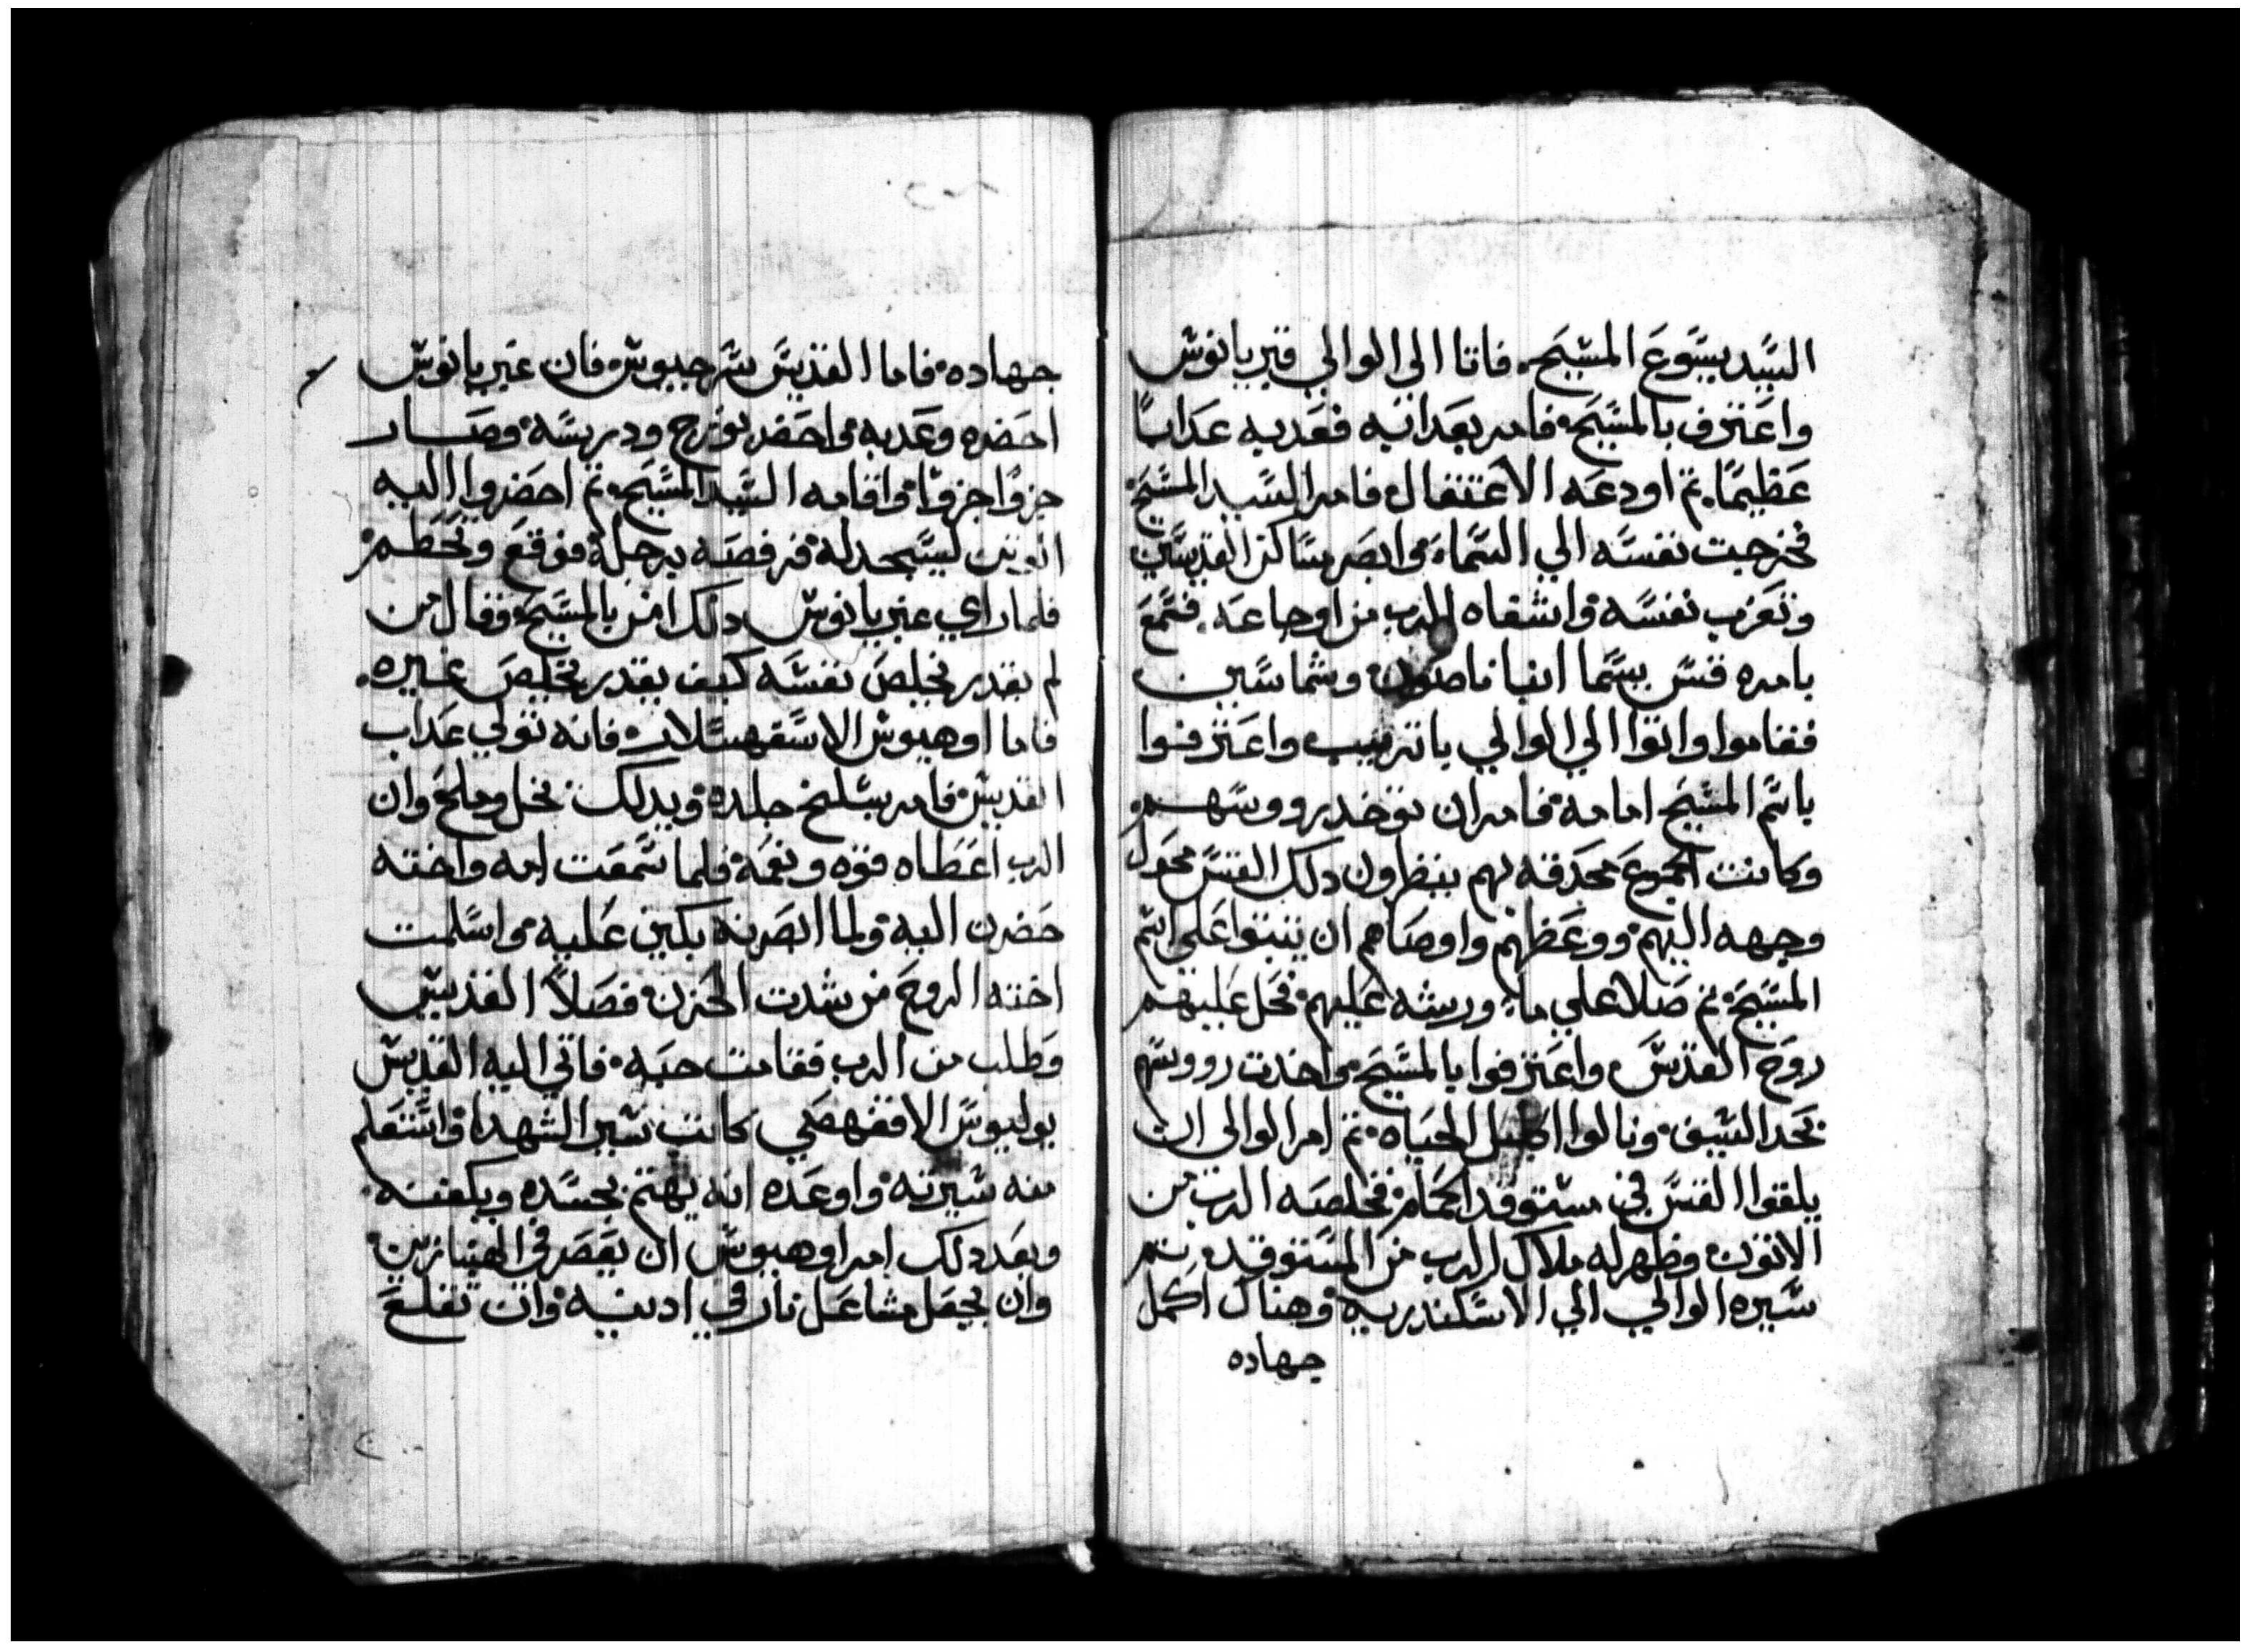 السيد يسوع المسيح. فاتا الي الوالي قبريانوس
واعترف بالمسيح فامر بعدابه فعدبه عدابا
عظيما. تم اودعه الاعتقال فامر السيد المسيح
فخرجت نفسه الي السماء وابصر مساكن القديسين
وتعزت نفسه واشفاه الرب من اوجاعه. فسمع
بامره قس يسما انبا وشماسين
فقاموا واتوا الي الوالي باترتيب واعترفوا
باسم المسيح امامه فامر ان توخد رووسهم
وكانت الجموع محدقه بهم ينظرون دلك القس محول
وجهه اليهم ووعظهم واوصاهم ان يتبتوا علي اسم
المسيح تم صلا علي ماء ورشه عليهم فحل عليهم
روح القدس واعترفوا بالمسيح واخدت رووسهم
بحد السيف ونالوا اكليل الحياه تم امر الوالي ان
يلقوا القس في مستوقد الحمام فخلصه الرب من
الاتون وظهر له ملاك الرب من المستوقد تم
سيره الوالي الي الاسكندريه وهناك اكمل
جهاده
جهاده فاما القديس سرجيوس فان قبريانوس
احضره وعدبه واحضر نورج ودرسه وصار
جزوا جزوا واقامه السيد المسيح تم احضروا اليه
ليسجد له فرفصه برجله فوقع وتحطم
فلما راي قبريانوس دلك امن بالمسيح وقال من
لم يقدر يخلص نفسه كيف يقدر يخلص غيره.
فاما اوهيوس الاسفهسلار فانه تولي عداب
القديس فامر بسلخ جلده ويدلك بخل وملح وان
الرب اعطاه قوه ونعمه فلما سمعت امه واخته
حضرن اليه ولما ابصرنه بكين عليه واسلمت
اخته الروح من شدت الحزن فصلا القديس
وطلب من الرب فقامت حيه فاتي اليه القديس
يوليوس الاقفهصي كاتب سير الشهدا واستعلم
منه سيرته واوعده انه يهتم بجسده ويكفنه.
وبعد دلك امر اوهيوس ان يعصر في الهنبازين
وان يجعل مشاعل نار في ادنيه وان تقلع